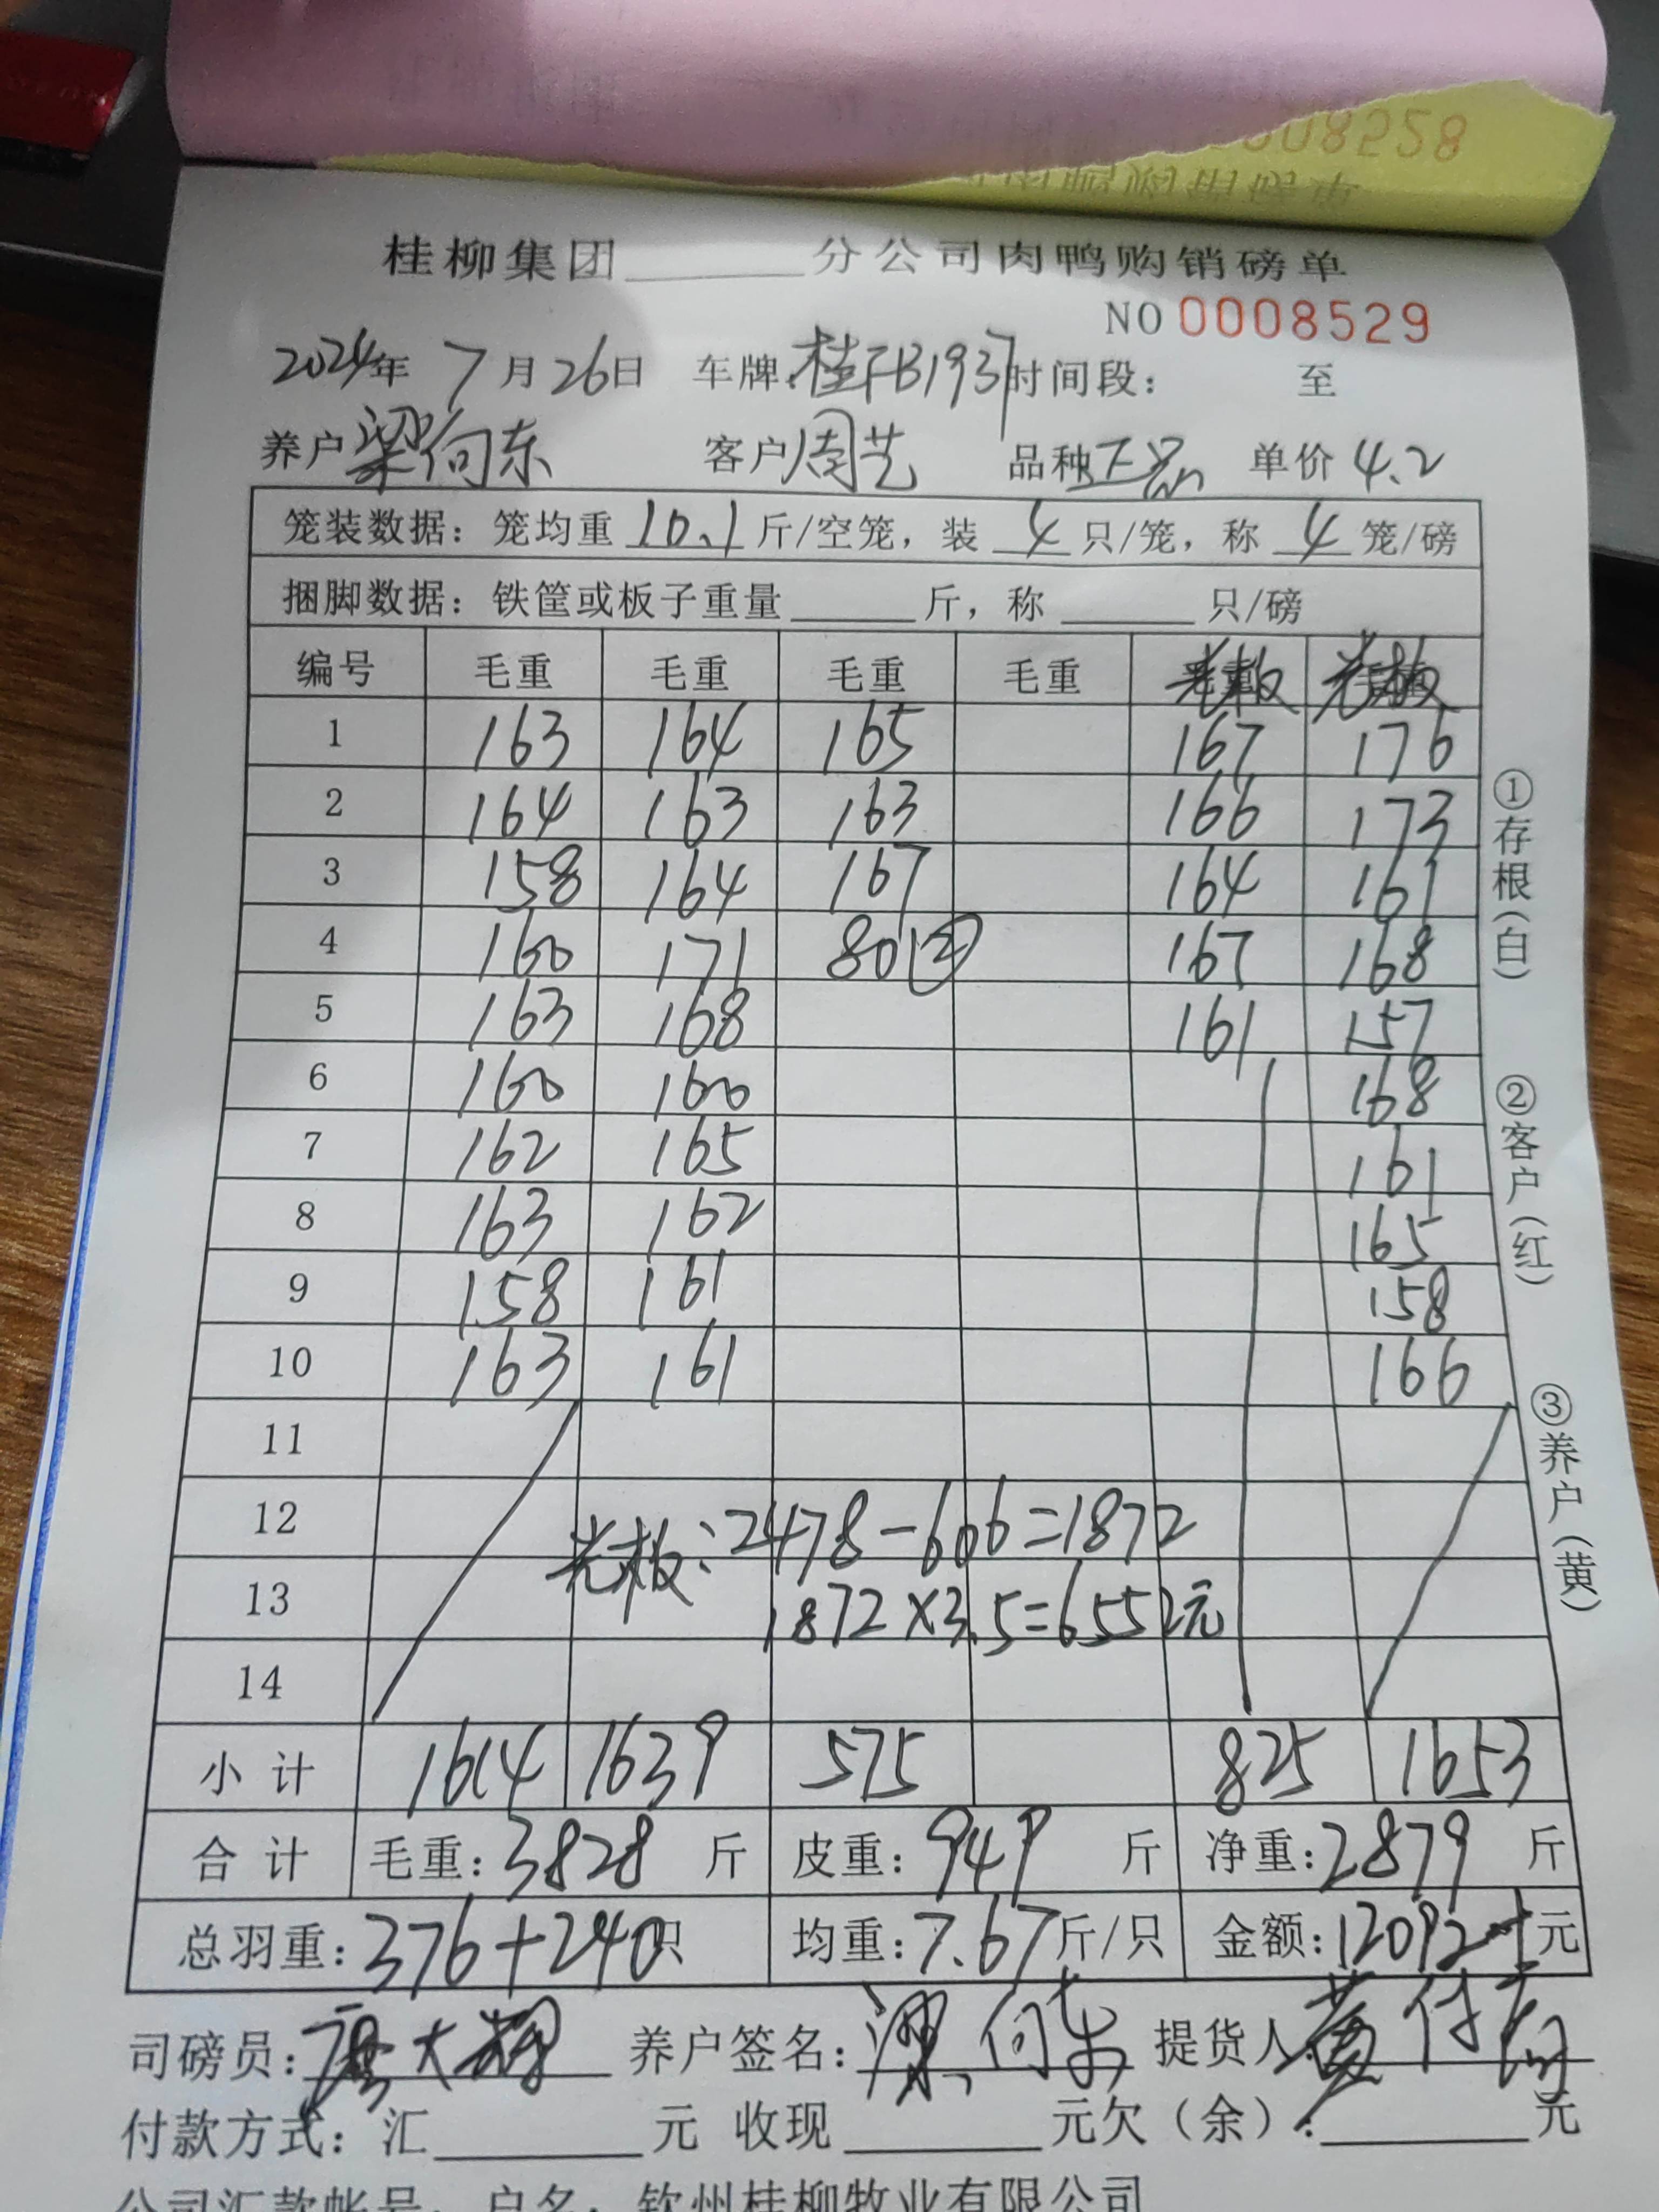 桂柳集团______分公司肉鸭购销磅单
NO 0008529
2024年 7月26日 车牌:桂FB1937 时间段: 至
养户 梁向东 客户 周艺 品种 正品 单价 4.2
笼装数据：笼均重 10.1 斤/空笼，装 4 只/笼，称 4 笼/磅
捆脚数据：铁筐或板子重量______斤，称______只/磅
编号 毛重 毛重 毛重 毛重 光板 光板
1 163 164 165 167 176
2 164 163 163 166 173
3 158 164 167 164 161
4 160 171 80② 167 168
5 163 168 161 157
6 160 160 168
7 162 165 161
8 163 162 165
9 158 161 158
10 163 161 166
11
12 光板：2478-606=1872
13 1872×3.5=6552元
14
小计 1614 1639 575 825 1653
合计 毛重：3828 斤 皮重：949 斤 净重：2879 斤
总羽重：376+240只 均重：7.67斤/只 金额：12092元
司磅员： 养户签名：梁向东 提货人：黄付
付款方式：汇______元 收现______元欠（余）：______元
公司汇款帐号：户名：钦州桂柳牧业有限公司
①存根（白） ②客户（红） ③养户（黄）